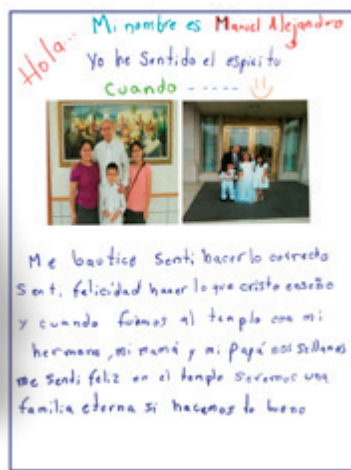 Hola...
Mi nombre es Manuel Alejandro
Yo he Sentido el espiritu
Cuando ----- 
Me bautice Senti hacer lo correcto
Senti felicidad hacer lo que cristo enseño
y cuando fuimos al templo con mi
hermana, mi mamá y mi papá nos sellamos
me senti feliz en el templo Seremos una
familia eterna si hacemos lo bueno